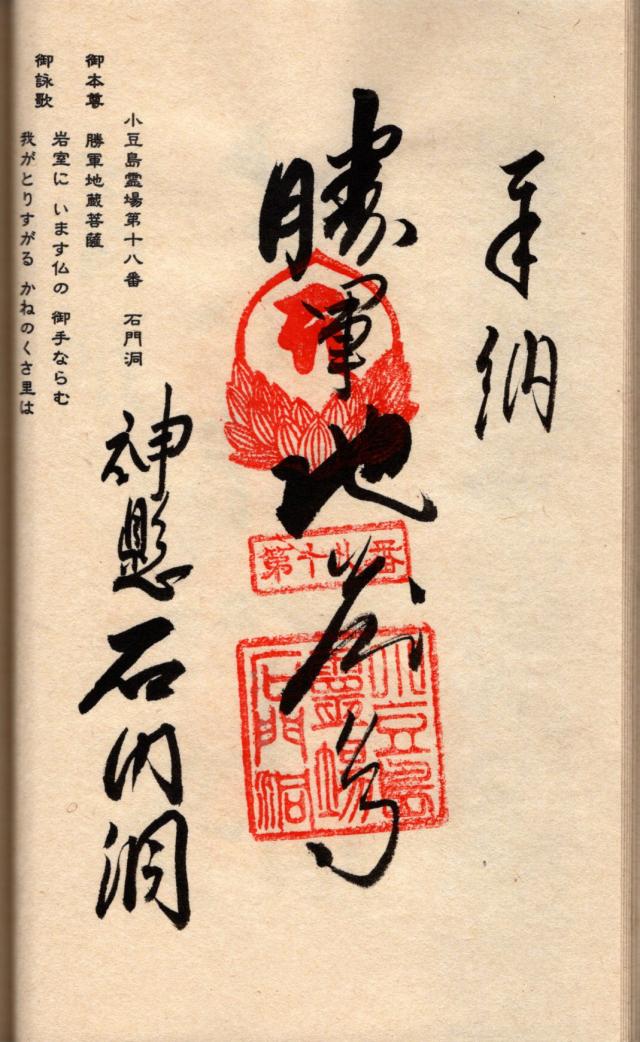 奉納
勝軍地蔵尊
第十八番
小豆島
霊場
石門洞
神懸石門洞
小豆島霊場第十八番 石門洞
御本尊 勝軍地蔵菩薩
御詠歌 岩室に います仏の 御手ならむ
我がとりすがる かねのくさ里は